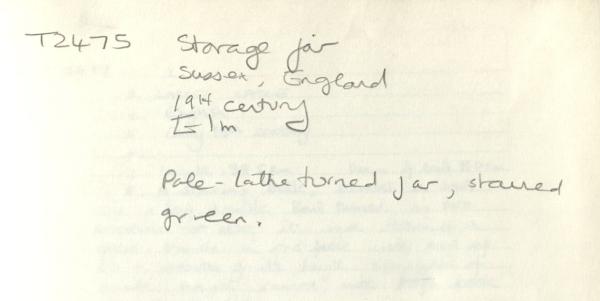 T2475 Storage jar
Sussex, England
19th century
Elm
Pole-lathe turned jar, stained
green.